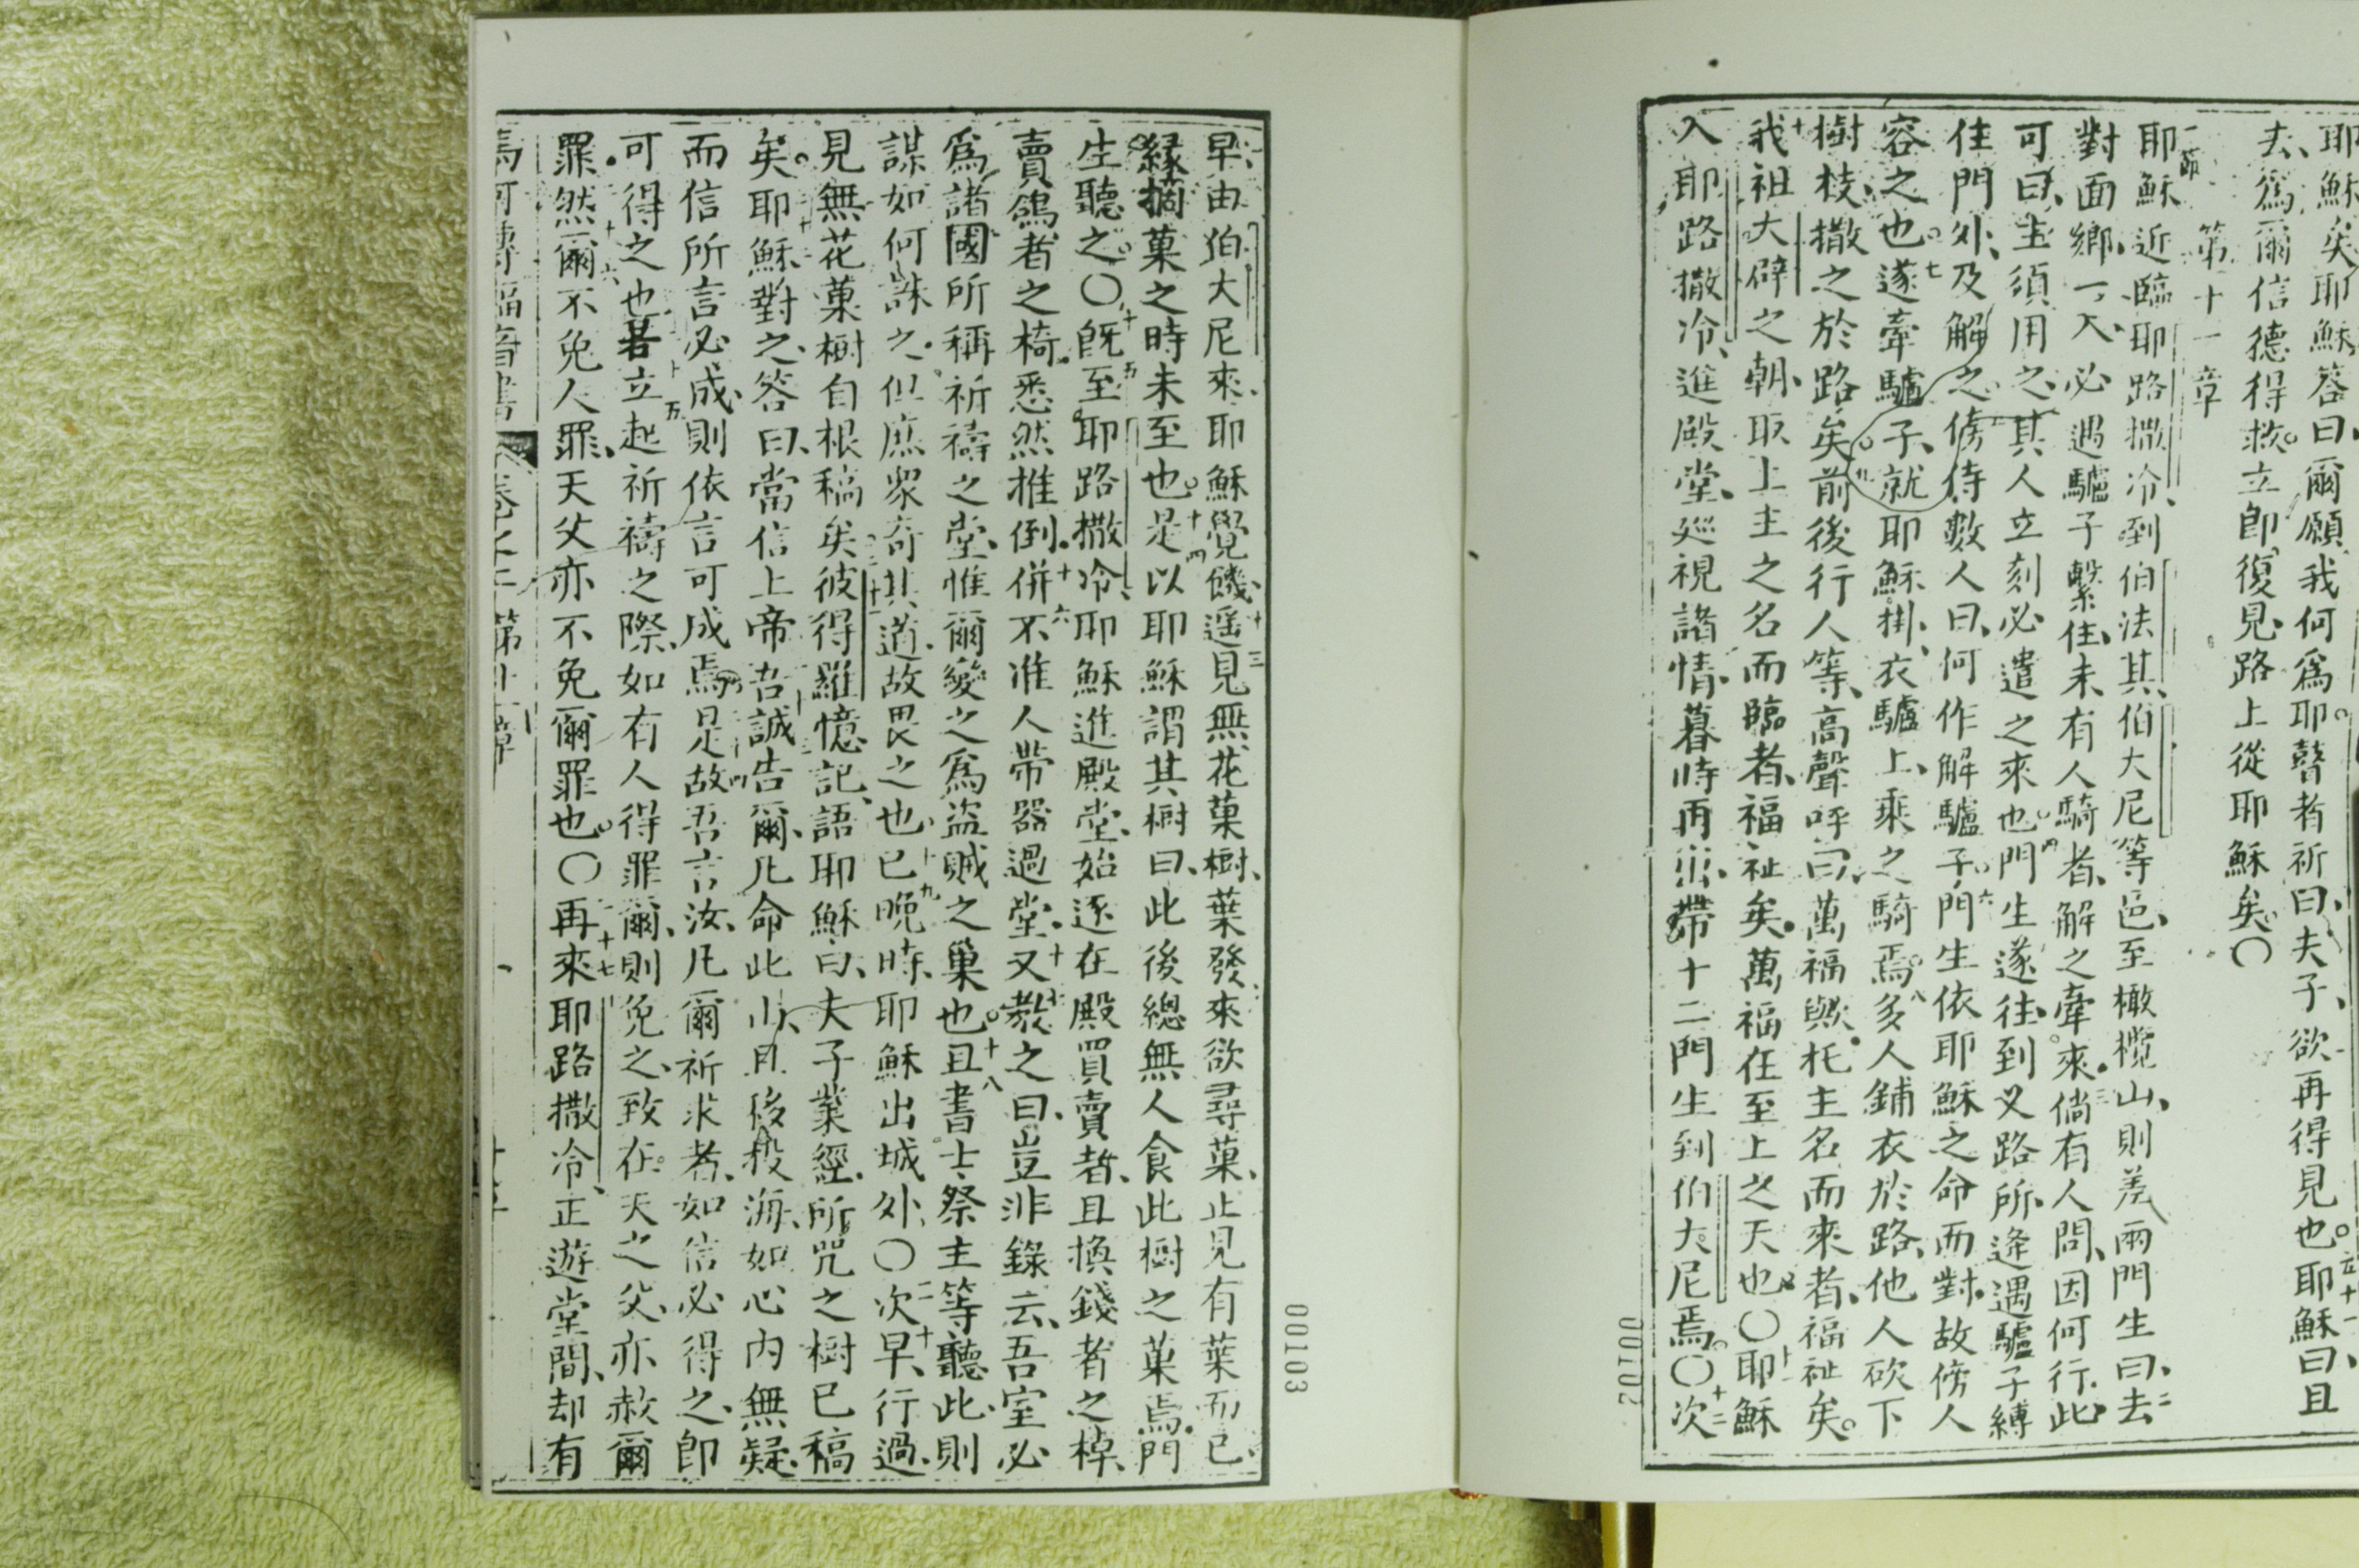 耶穌矣耶穌答曰爾願我何爲耶瞽者祈曰夫子欲再得見也耶穌曰且
去爲爾信德得救立卽復見路上從耶穌矣〇
第十一章
耶穌近臨耶路撒冷到伯法其伯大尼等邑至橄欖山則差兩門生曰去
對面鄉一入必遇驢子繫住未有人騎者解之牽來倘有人問因何行此
可曰主須用之其人立刻必遣之來也門生遂往到叉路所逢遇驢子縛
住門外及解之傍侍數人曰何作解驢子門生依耶穌之命而對故傍人
容之也遂牽驢子就耶穌掛衣驢上乘之騎焉多人鋪衣於路他人砍下
樹枝撒之於路矣前後行人等高聲呼曰萬福與托主名而來者福祉矣
我祖大辟之朝取上主之名而臨者福祉矣萬福在至上之天也〇耶穌
入耶路撒冷進殿堂廵視諸情暮時再出帶十二門生到伯大尼焉〇次
00102
早由伯大尼來耶穌覺饑遥見無花菓樹葉發來欲尋菓止見有葉而已
緣摘菓之時未至也是以耶穌謂其樹曰此後總無人食此樹之菓焉門
生聽之〇旣至耶路撒冷耶穌進殿堂始逐在殿買賣者且換錢者之棹
賣鴿者之椅悉然推倒併不准人帶器過堂又教之曰豈非錄云吾室必
爲諸國所稱祈禱之堂惟爾變之爲盜賊之巢也且書士祭主等聽此則
謀如何誅之但庶眾奇其道故畏之也已晚時耶穌出城外〇次早行過
見無花菓樹自根稿矣彼得羅憶記語耶穌曰夫子業經所咒之樹已稿
矣耶穌對之答曰當信上帝吾誠告爾凡命此山且移投海如心內無疑
而信所言必成則依言可成焉是故吾言汝凡爾祈求者如信必得之卽
可得之也若立起祈禱之際如有人得罪爾則免之致在天之父亦赦爾
罪然爾不免人罪天父亦不免爾罪也〇再來耶路撒冷正遊堂間却有
福音書 卷之二 第十一章
00103